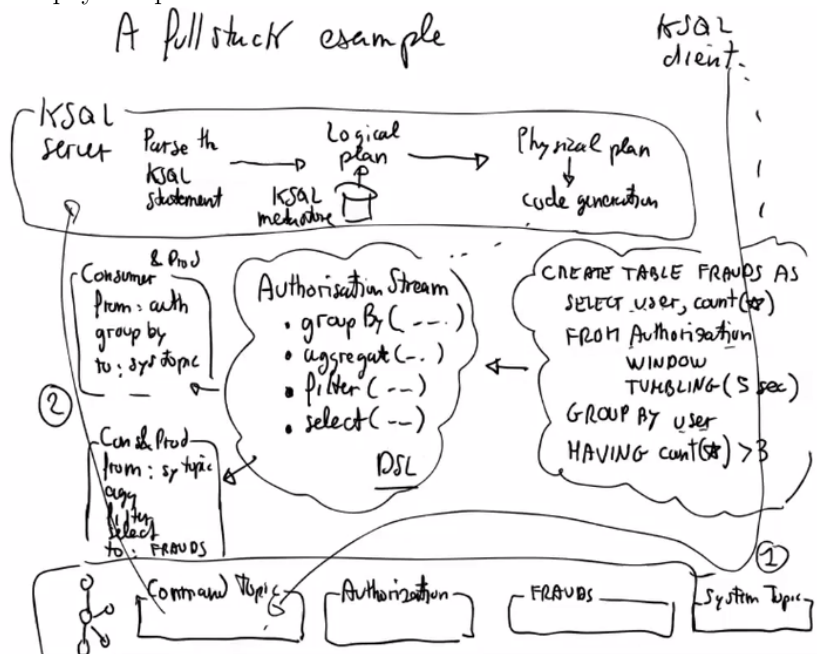 A full stack example
KSQL
client
KSQL
server
Parse th
KSQL
statement
Logical
plan
KSQL
metastore
Physical plan
code generation
& Prod
Consumer
from: auth
group by
to: sys topic
Authorisation Stream
• group By (---.)
• aggregat (-.)
• filter (--)
• select (--)
DSL
CREATE TABLE FRAUDS AS
SELECT user, count(*)
FROM Authorisation
WINDOW
TUMBLING (5 sec)
GROUP BY user
HAVING count(*) > 3
2
Cons & Prod
from: sy topic
agg
filter
select
to: FRAUDS
1
Command Topic
Authorization
FRAUDS
System Topic